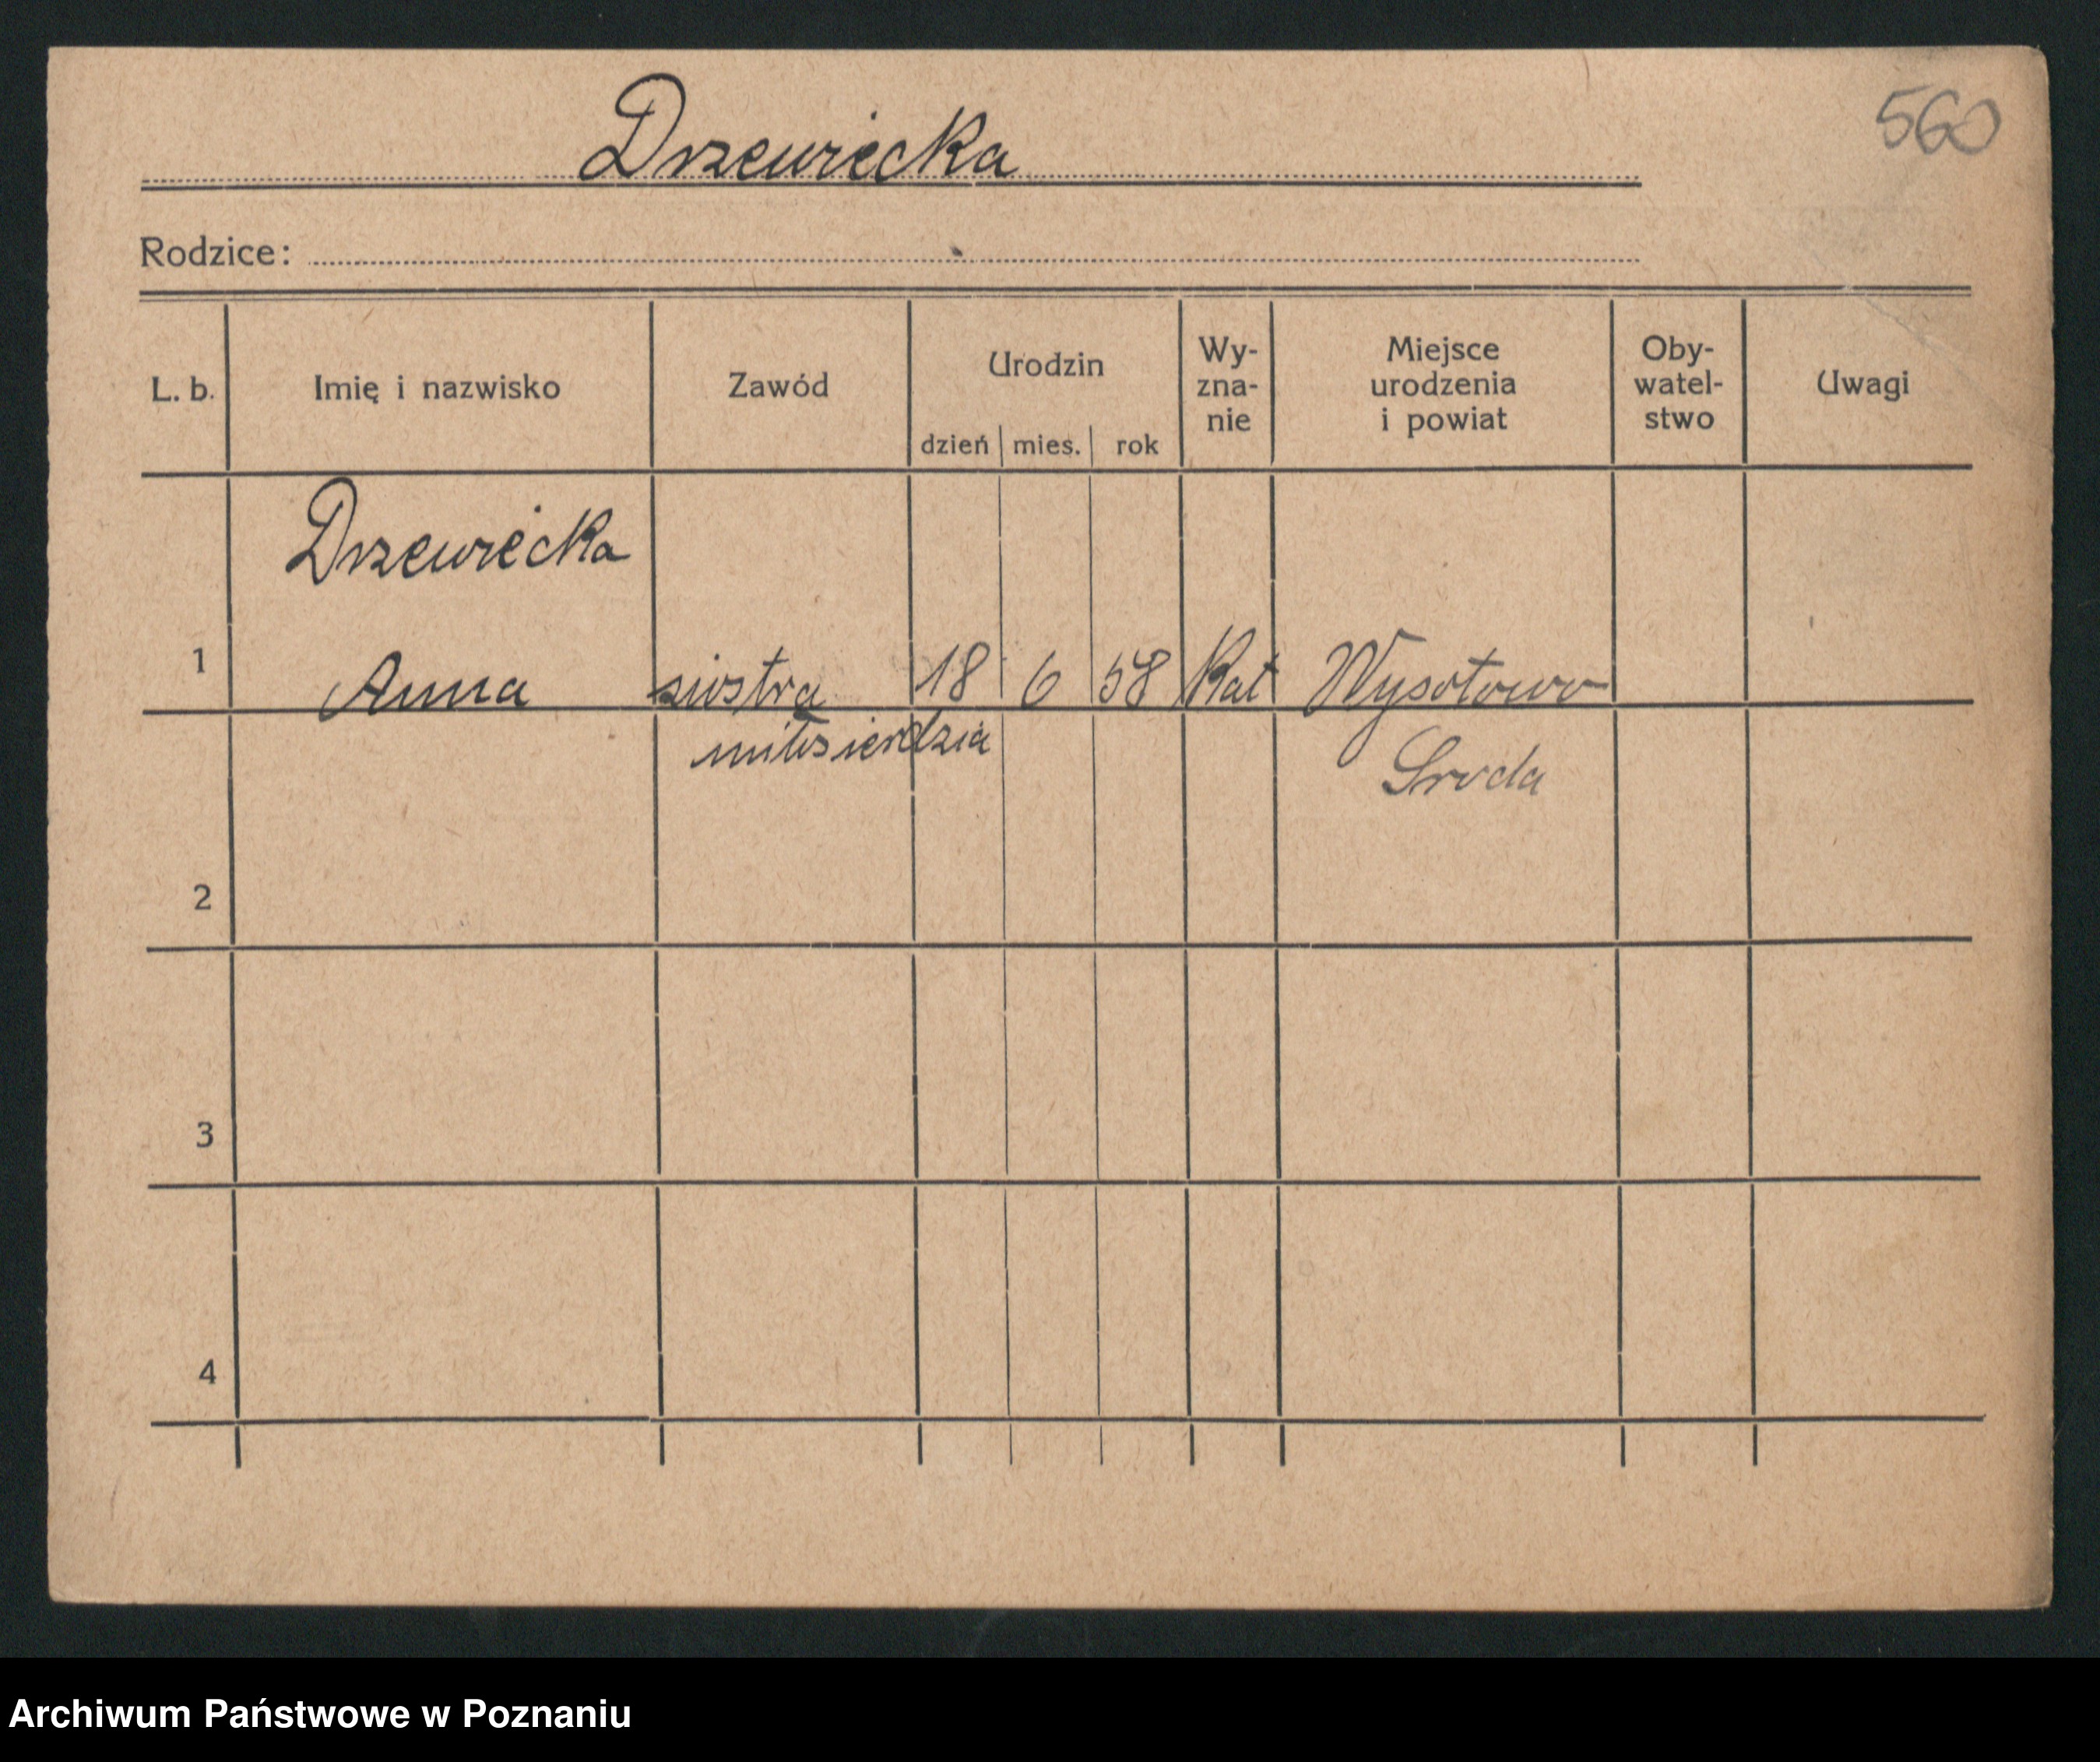 560
Drzewiecka
Rodzice:
L. b. Imię i nazwisko Zawód Urodzin dzień mies. rok Wy-zna-nie Miejsce urodzenia i powiat Oby-watel-stwo Uwagi
Drzewiecka
1 Anna siostra 18 6 58 Kat Wysotowo
miłosierdzia Sroda
2
3
4
Archiwum Państwowe w Poznaniu